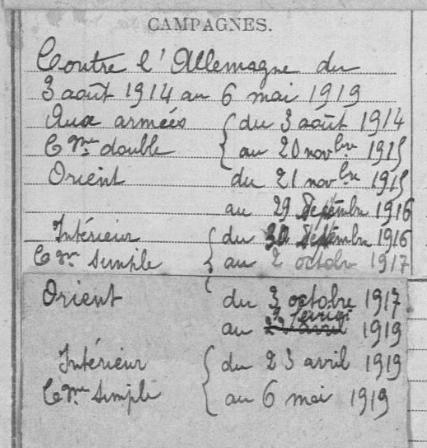 CAMPAGNES.
Contre l'Allemagne du
3 août 1914 au 6 mai 1919
Aux armées { du 3 août 1914
Cgne double { au 20 novbre 1915
Orient du 21 novbre 1915
au 29 Septembre 1916
Intérieur { du 30 Septembre 1916
Cgne simple { au 2 octobr 1917
Orient du 3 octobre 1917
février
au avril 1919
Intérieur { du 23 avril 1919
Cgne simple { au 6 mai 1919